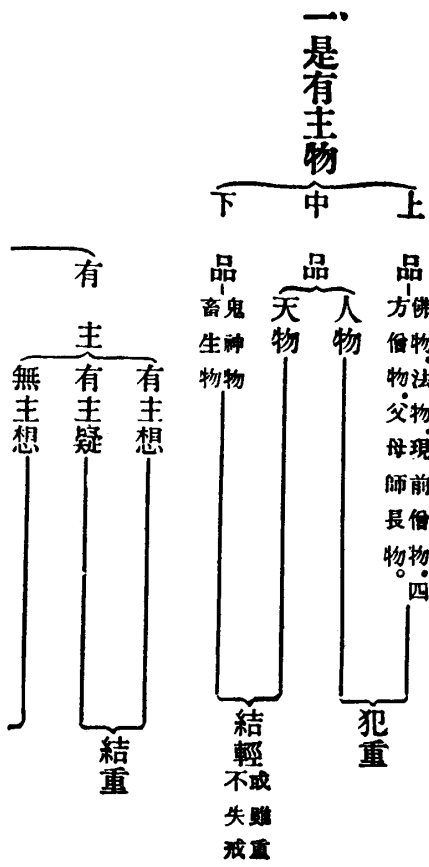 一、是有主物
上品
佛物.法物.現前僧物.四
方僧物.父母師長物。
中品
人物
天物
下品
鬼神物
畜生物
犯重
結輕
或雖重
不失戒
有主
有主想
有主疑
無主想
結重